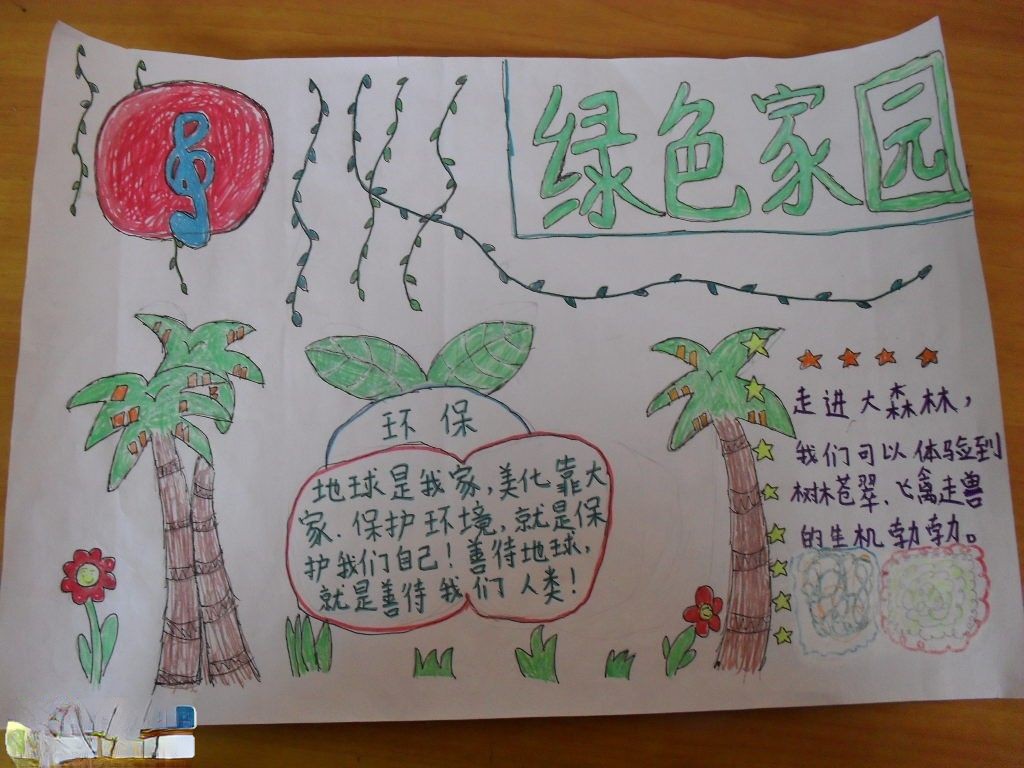 绿色家园
环保
地球是我家,美化靠大
家.保护环境,就是保
护我们自己!善待地球,
就是善待我们人类!
走进大森林,
我们可以体验到
树林苍翠、飞禽走兽
的生机勃勃。